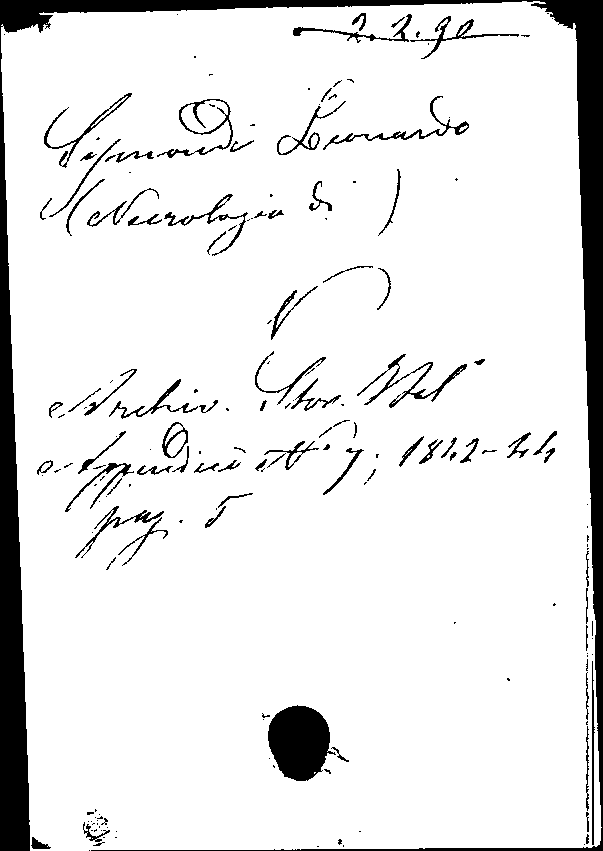 2.2.90
Sismondi Leonardo
(Necrologia di )
V
Archiv. Stor. Ital
Appendice N° 7; 1842-44
pag. 5